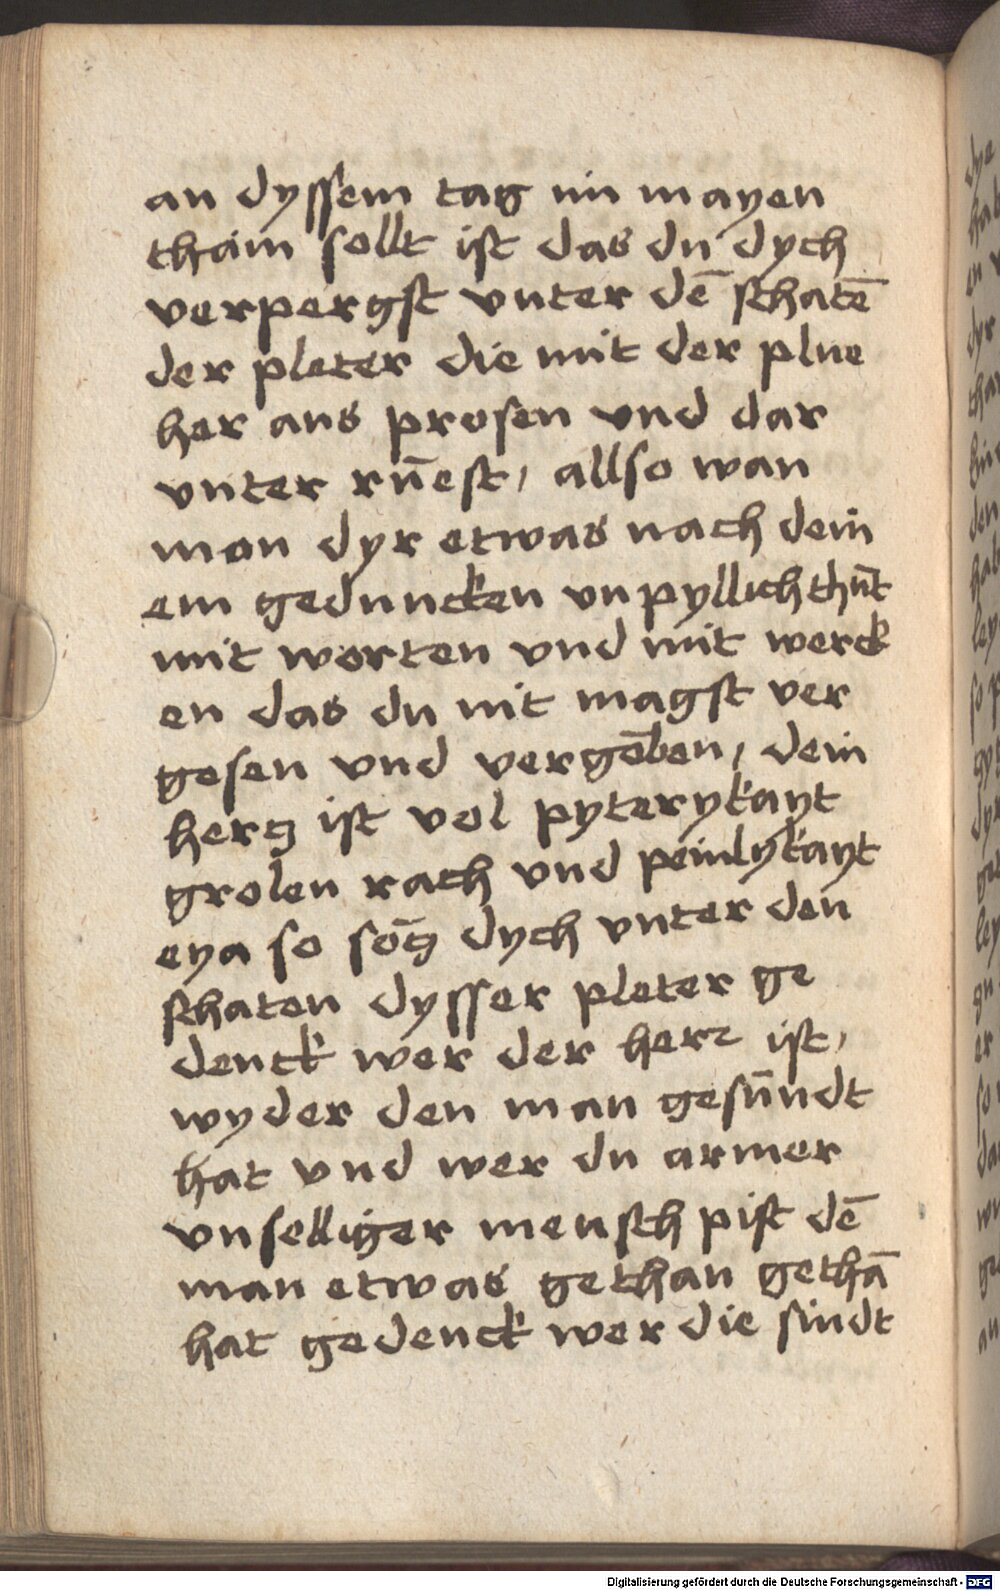 an dyssem tag im mayen
tham sollt ist das du dych
verpergst vnter dē schatē
der pleter die mit der plue
her aus prosen vnd dar
vnter rūest, allso wan
man dyr etwas nach dein
em geduncken vnpyllich thūt
mit worten vnd mit werck
en das du nit magst ver
gesen vnd vergeben, dein
hertz ist vol pyterykayt
grolen rach vnd peinlykayt
eya so sōtz dych vnter den
schaten dysser pleter ge
denck wer der herr ist,
wyder den man gesūndt
hat vnd wer du armer
vnselliger mensch pist dē
man etwas gethan gethā
hat gedenck wer die sindt
Digitalisierung gefördert durch die Deutsche Forschungsgemeinschaft - DFG